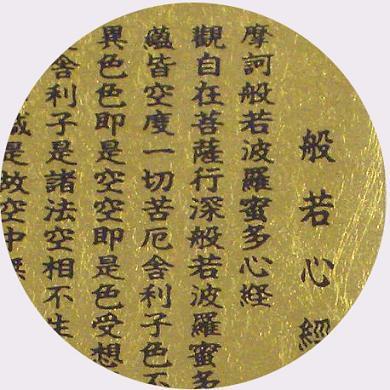 般若心經
摩訶般若波羅蜜多心経
觀自在菩薩行深般若波羅蜜多
蘊皆空度一切苦厄舍利子色不
異色色即是空空即是色受想
舍利子是諸法空相不生
是故空中無